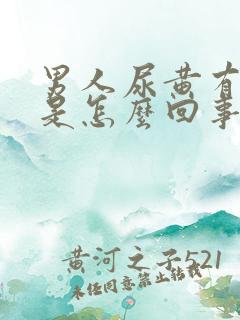 男人尿黄有
是怎麼回事
黄河之子521
未经同意禁止转载